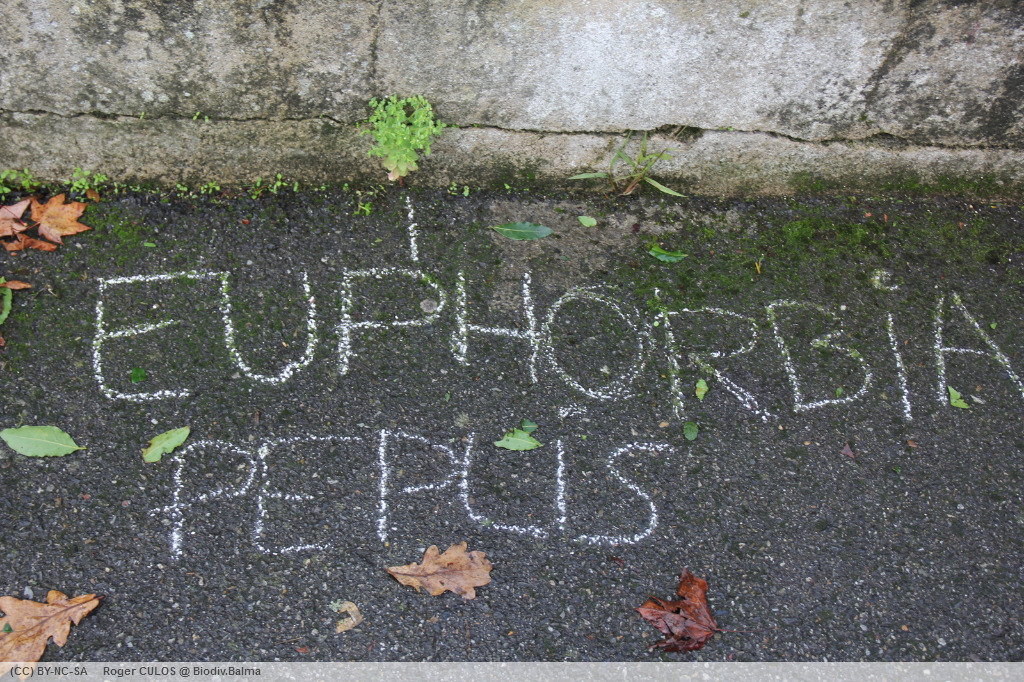 EUPHORBIA
PEPLIS
(CC) BY-NC-SA Roger CULOS @ Biodiv.Balma